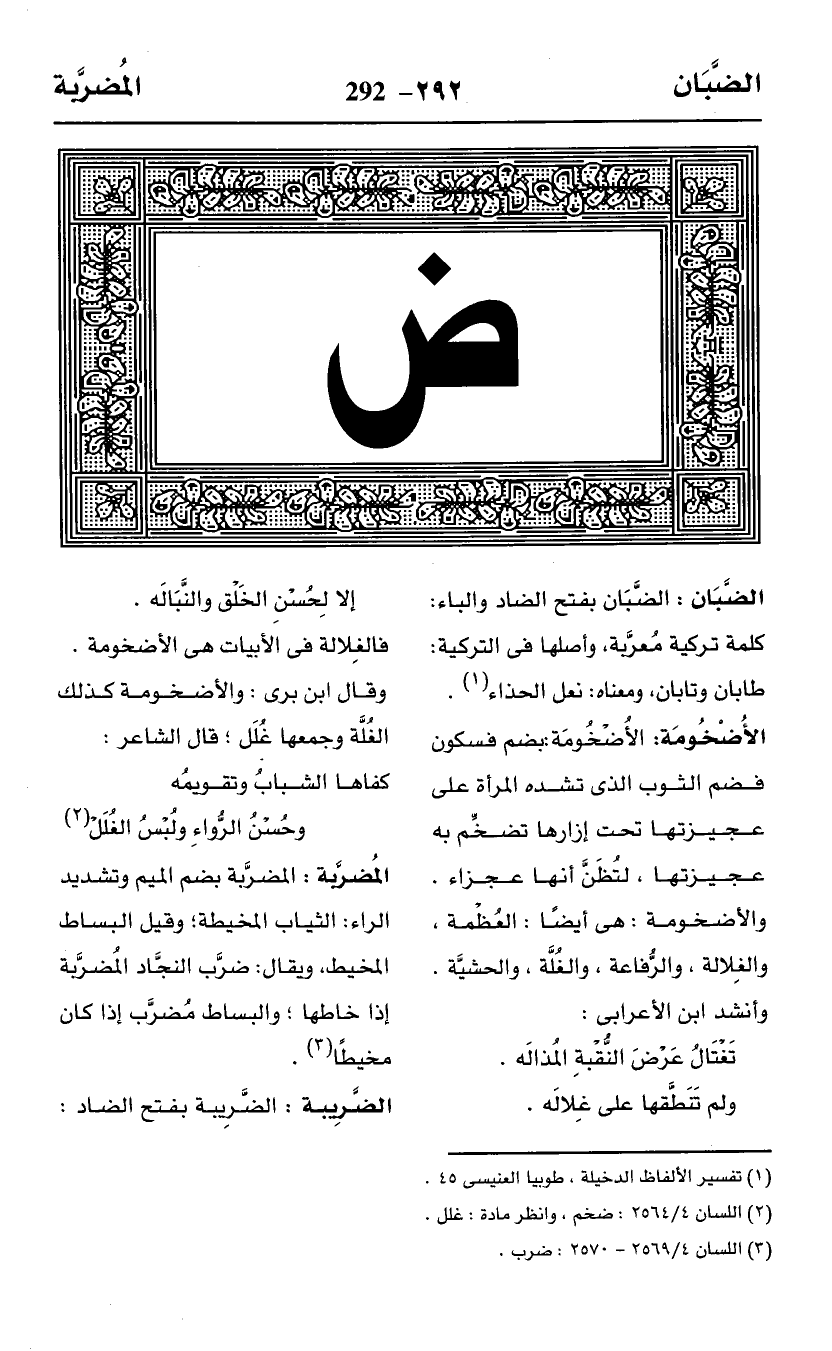 الضبَّان
٢٩٢- 292
المُضربَّة
ض
الضبَّان : الضبَّان بفتح الضاد والباء:
كلمة تركية مُعربَّة، وأصلها فى التركية:
طابان وتابان، ومعناه: نعل الحذاء(١) .
الأُضْخُومَة: الأُضْخُومَة:بضم فسكون
فضم الثوب الذى تشده المرأة على
عجيزتها تحت إزارها تضخِّم به
عجيزتها ، لتُظَنَّ أنها عجزاء .
والأضخومة : هى أيضًا : العُظْمة ،
والغِلالة ، والرُّفاعة ، والغُلَّة ، والحشيَّة .
وأنشد ابن الأعرابى :
تَغْتَالُ عَرْضَ النُّقْبةِ المُذالَه .
ولم تَنَطَّقها على غِلالَه .
إلا لِحُسْنِ الخَلْق والنَّبَالَه .
فالغِلالة فى الأبيات هى الأضخومة .
وقال ابن برى : والأضخومة كذلك
الغُلَّة وجمعها غُلَل ؛ قال الشاعر :
كفاها الشبابُ وتقويمُه
وحُسْنُ الرُّواءِ ولُبْسُ الغُلَلْ(٢)
المُضربَّة : المضربَّة بضم الميم وتشديد
الراء: الثياب المخيطة؛ وقيل البساط
المخيط، ويقال: ضرَّب النجَّاد المُضربَّة
إذا خاطها ؛ والبساط مُضرَّب إذا كان
مخيطًا(٣) .
الضَّرِيبة : الضَّرِيبة بفتح الضاد :
(١) تفسير الألفاظ الدخيلة ، طوبيا العنيسى ٤٥ .
(٢) اللسان ٢٥٦٤/٤ : ضخم ، وانظر مادة : غلل .
(٣) اللسان ٢٥٦٩/٤ – ٢٥٧٠ : ضرب .